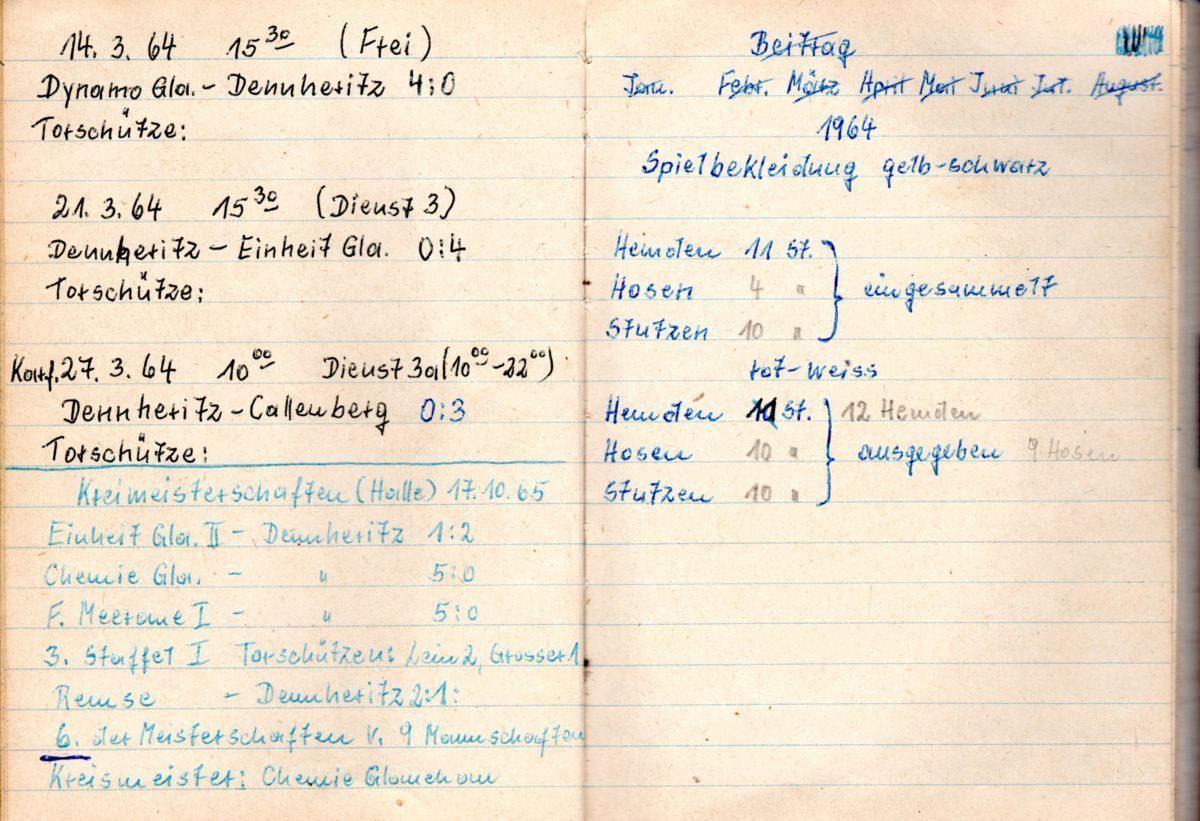 14. 3. 64 15³⁰ (Frei)
Dynamo Gla. - Dennheritz 4:0
Torschütze:
21. 3. 64 15³⁰ (Dienst 3)
Dennheritz - Einheit Gla. 0:4
Torschütze:
Karf. 27. 3. 64 10⁰⁰ Dienst 3a (10⁰⁰-22⁰⁰)
Dennheritz - Callenberg 0:3
Torschütze:
Kreimeisterschaften (Halle) 17.10.65
Einheit Gla. II - Dennheritz 1:2
Chemie Gla. - " 5:0
F. Meerane I - " 5:0
3. Staffel I Torschützen: Lein 2, Grosser 1
Remse - Dennheritz 2:1:
6. der Meisterschaften v. 9 Mannschaften
Kreismeister: Chemie Glauchau
Beitrag
Jan. Febr. März April Mai Juni Jul. August.
1964
Spielbekleidung gelb-schwarz
Hemden 11 St.
Hosen 4 " eingesammelt
Stutzen 10 "
rot-weiss
Hemden 11 St. 12 Hemden
Hosen 10 " ausgegeben 9 Hosen
Stutzen 10 "